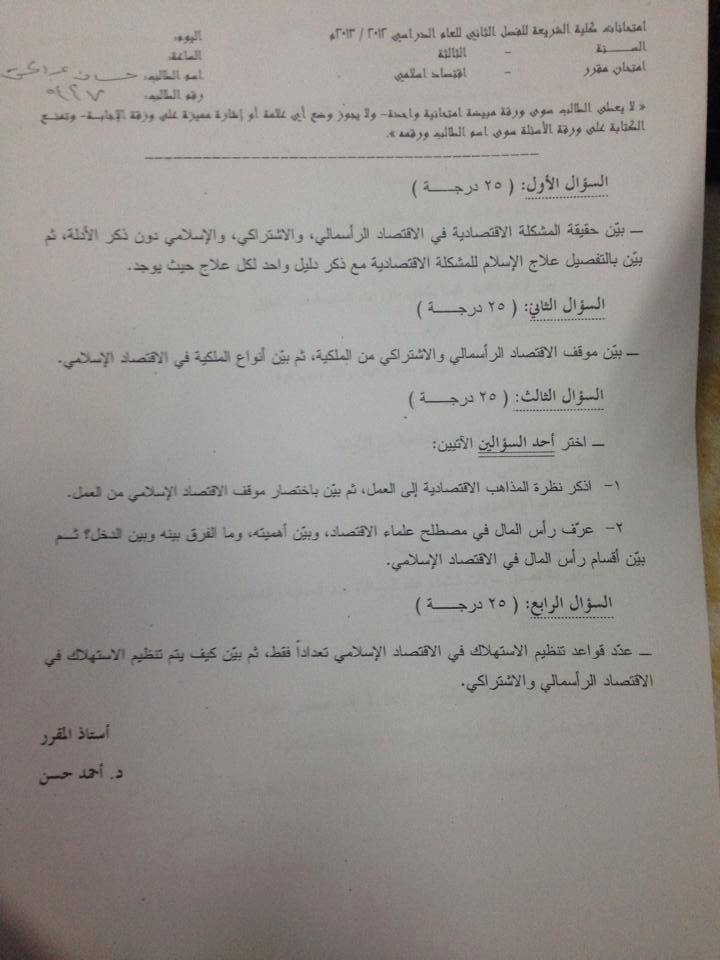 امتحانات كلية الشريعة للفصل الثاني للعام الدراسي ٢٠١٢ / ٢٠١٣م اليوم:
السنة - الثالثة الساعة:
امتحان مقرر - اقتصاد اسلامي اسم الطالب: حسان
رقم الطالب: ٥٤٢٧
« لا يعطى الطالب سوى ورقة مبيضة امتحانية واحدة- ولا يجوز وضع أي علامة أو إشارة مميزة على ورقة الإجابة- وتمنع
الكتابة على ورقة الأسئلة سوى اسم الطالب ورقمه ».
السؤال الأول: ( ٢٥ درجة )
– بيّن حقيقة المشكلة الاقتصادية في الاقتصاد الرأسمالي، والاشتراكي، والإسلامي دون ذكر الأدلة، ثم
بيّن بالتفصيل علاج الإسلام للمشكلة الاقتصادية مع ذكر دليل واحد لكل علاج حيث يوجد.
السؤال الثاني: ( ٢٥ درجة )
– بيّن موقف الاقتصاد الرأسمالي والاشتراكي من الملكية، ثم بيّن أنواع الملكية في الاقتصاد الإسلامي.
السؤال الثالث: ( ٢٥ درجة )
– اختر أحد السؤالين الآتيين:
١- اذكر نظرة المذاهب الاقتصادية إلى العمل، ثم بيّن باختصار موقف الاقتصاد الإسلامي من العمل.
٢- عرّف رأس المال في مصطلح علماء الاقتصاد، وبيّن أهميته، وما الفرق بينه وبين الدخل؟ ثم
بيّن أقسام رأس المال في الاقتصاد الإسلامي.
السؤال الرابع: ( ٢٥ درجة )
– عدّد قواعد تنظيم الاستهلاك في الاقتصاد الإسلامي تعداداً فقط، ثم بيّن كيف يتم تنظيم الاستهلاك في
الاقتصاد الرأسمالي والاشتراكي.
أستاذ المقرر
د. أحمد حسن